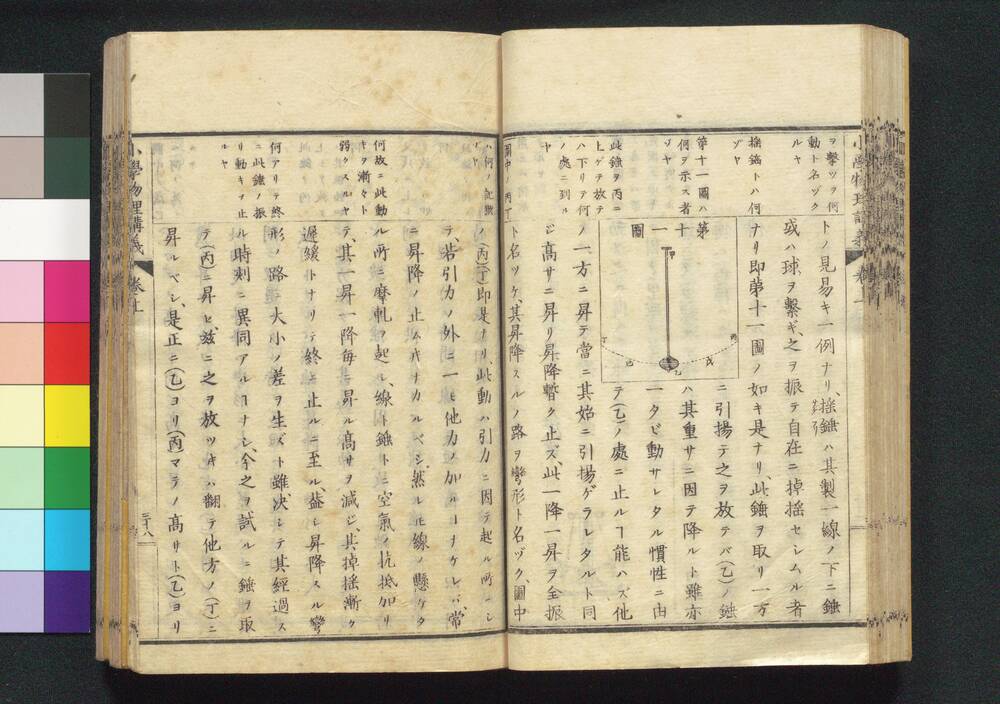 ヲ擊ツヲ何
動ト名ヅク
ルヤ
搖錘トハ何
ゾヤ
第十一圖ハ
何ヲ示ス者
ゾヤ
此錘ヲ丙ニ
上ゲテ放テ
ハ下リテ何
ノ處ニ到ル
ヤ
圖中ノ丙丁
トノ見易キ一例ナリ、搖錘ハ其製一線ノ下ニ錘
或ハ球ヲ繫ギ、之ヲ振テ自在ニ掉搖セシムル者
ナリ即第十一圖ノ如キ是ナリ、此錘ヲ取リ一方
ニ引揚テ之ヲ放テバ(乙)ノ錘
ハ其重サニ因テ降ルト雖亦
一タビ動サレタル慣性ニ由
テ(乙)ノ處ニ止ルヿ能ハズ他
第十一圖
甲
乙
丙
丁
戊
己
ノ一方ニ昇テ當ニ其始ニ引揚ゲラレタルト同
ジ高サニ昇リ昇降暫ク止ズ、此一降一昇ヲ全振
ト名ツケ、其昇降スルノ路ヲ彎形ト名ヅク、圖中
小學物理講義 卷之上
ハ何ノ
ゾヤ
何故ニ此動
キヲ漸々ト
弱クスルヤ
何アリテ終
ニ此錘ノ振
リ動キヲ止
ルヤ
ノ(丙)(丁)即是ナリ、此動ハ引力ニ因テ起ル所ニシ
テ、若引力ノ外ニ一モ他力ノ加ルーナケレバ、常
ニ昇降ノ止ムヿナカルベシ、然レ𪜈線ノ懸ケタ
ル所ニ摩軋ヲ起シ、線ト錘トニ空氣ノ抗抵加リ
テ、其一昇一降每ニ昇ル高サヲ減ジ、其掉搖漸ク
遲緩トナリテ終ニ止ルニ至ル蓋シ昇降スル彎
形ノ路大小ノ差ヲ生ズト雖决シテ其經過ス
ル時刻ニ異同アルヿナシ、今之ヲ試ルニ錘ヲ取
テ(丙)ニ昇セ、茲ニ之ヲ放ツ𪜈ハ翻テ他方ノ(丁)ニ
昇ルベシ、是正ニ(乙)ヨリ(丙)マテノ高サト(乙)ヨリ
小學物理講義 卷之上
三十八